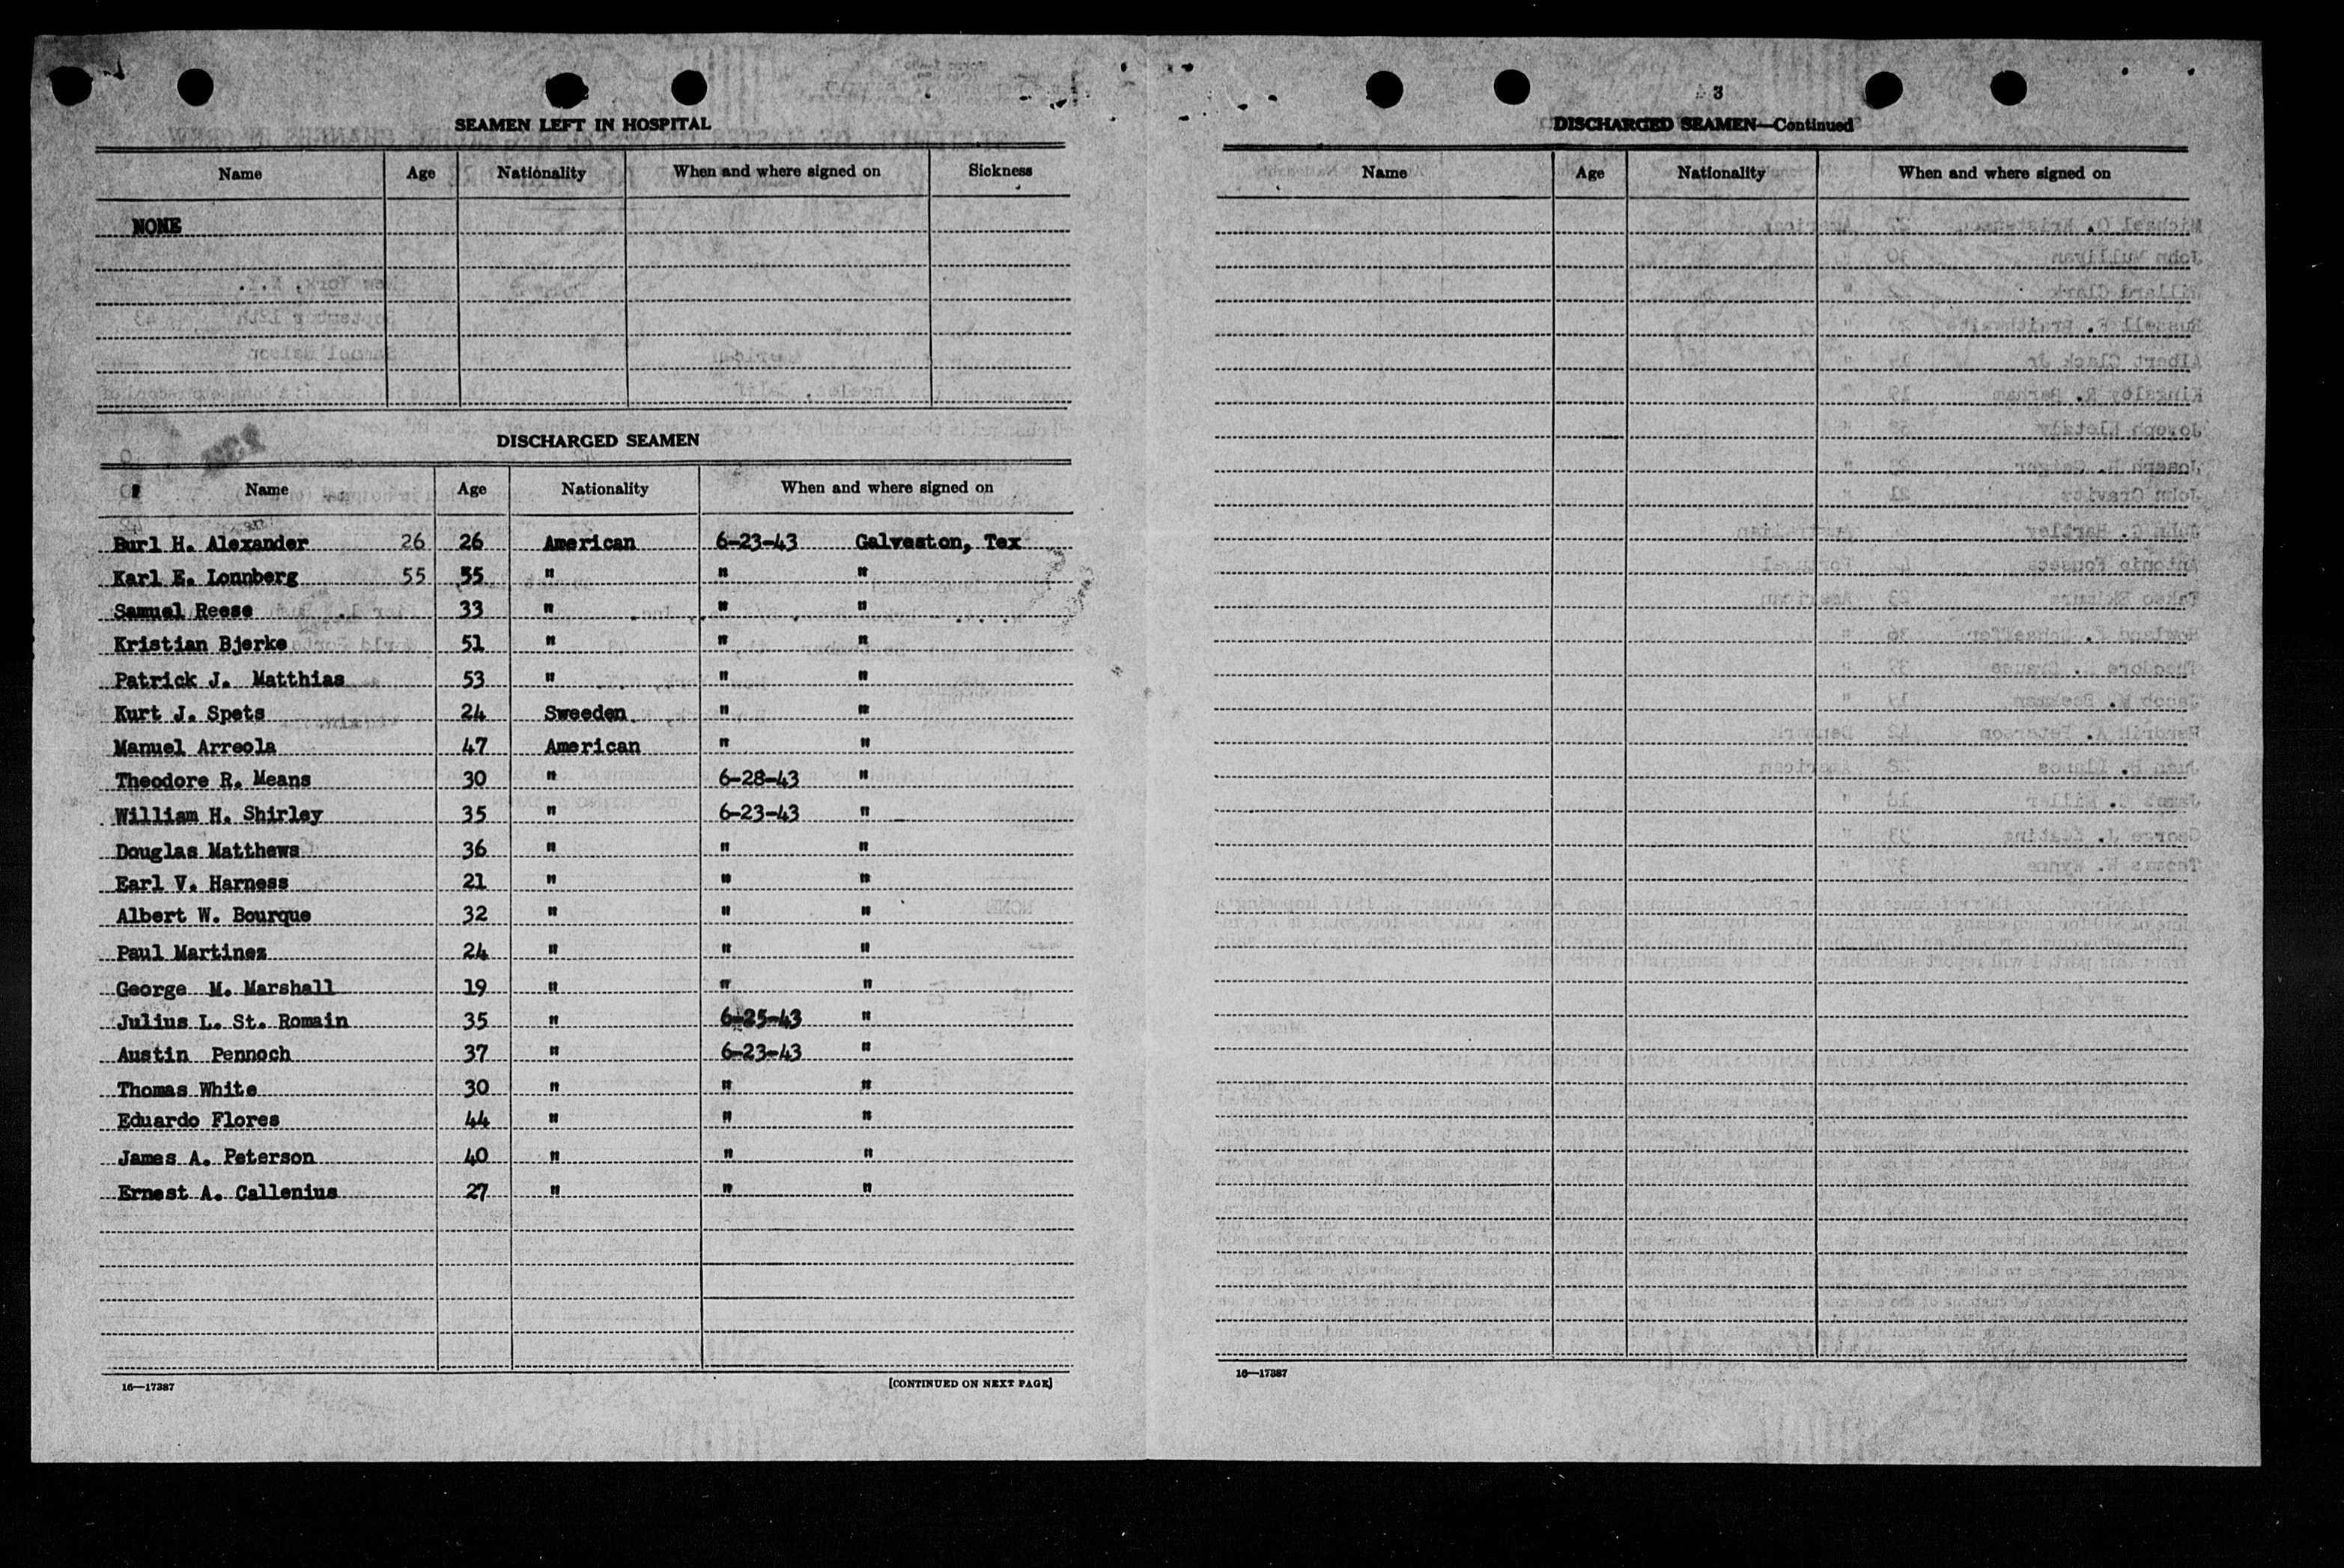 SEAMEN LEFT IN HOSPITAL
Name Age Nationality When and where signed on Sickness
NONE
DISCHARGED SEAMEN
Name Age Nationality When and where signed on
Burl H. Alexander 26 26 American 6-23-43 Galveston, Tex
Karl E. Lonnberg 55 55 " " "
Samuel Reese 33 " " "
Kristian Bjerke 51 " " "
Patrick J. Matthias 53 " " "
Kurt J. Spets 24 Sweeden " "
Manuel Arreola 47 American " "
Theodore R. Means 30 " 6-28-43 "
William H. Shirley 35 " 6-23-43 "
Douglas Matthews 36 " " "
Earl V. Harness 21 " " "
Albert W. Bourque 32 " " "
Paul Martinez 24 " " "
George M. Marshall 19 " " "
Julius L. St. Romain 35 " 6-25-43 "
Austin Pennoch 37 " 6-23-43 "
Thomas White 30 " " "
Eduardo Flores 44 " " "
James A. Peterson 40 " " "
Ernest A. Callenius 27 " " "
16—17387 [CONTINUED ON NEXT PAGE]
3
DISCHARGED SEAMEN—Continued
Name Age Nationality When and where signed on
16—17387